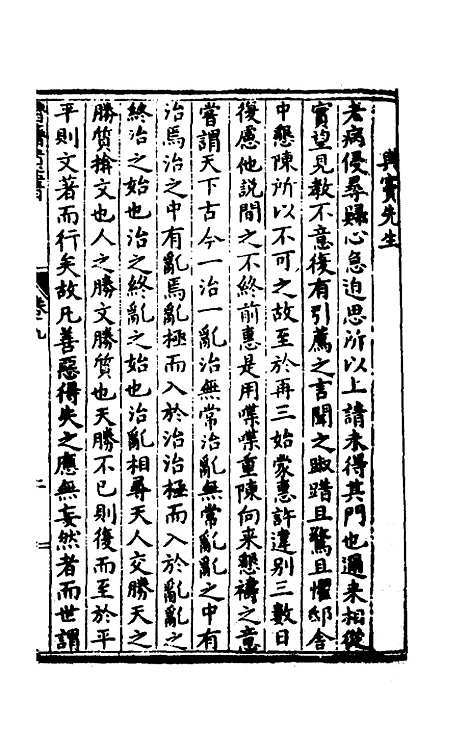 與竇先生
老病侵尋歸心急迫思所以上請未得其門也邇來相從
實望見教不意復有引薦之言聞之踧踖且驚且懼邸舍
中懇陳所以不可之故至於再三始蒙惠許違別三數日
復慮他說間之不終前惠是用喋喋重陳向來懇禱之意
嘗謂天下古今一治一亂治無常治亂無常亂亂之中有
治焉治之中有亂焉亂極而入於治治極而入於亂亂之
終治之始也治之終亂之始也治亂相尋天人交勝天之
勝質揜文也人之勝文勝質也天勝不已則復而至於平
平則文著而行矣故凡善惡得失之應無妄然者而世謂
卷九
二